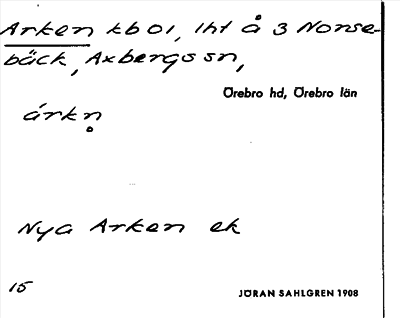 Arken kb 01, lht å 3 Norse-
bäck, Axbergs sn,
Örebro hd, Örebro län
árkn̥
Nya Arken ek
15
JÖRAN SAHLGREN 1908